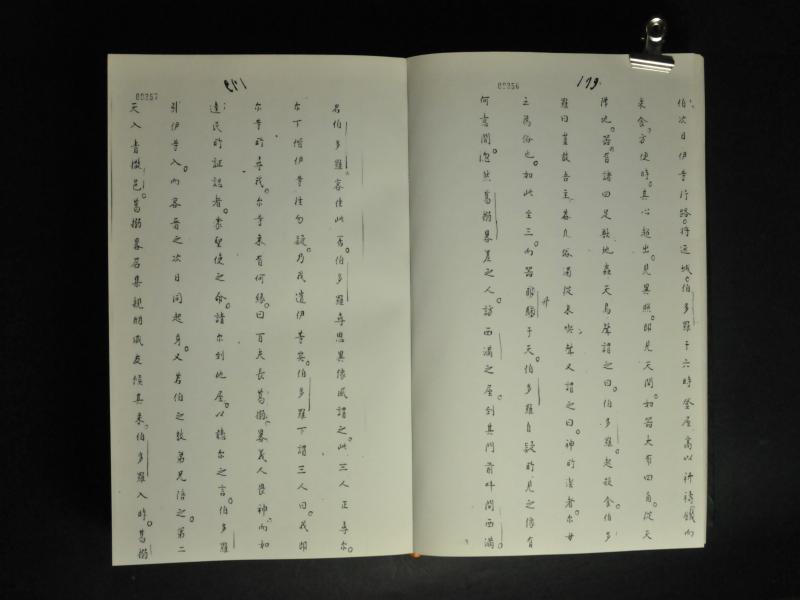 00356
伯次日伊等行路。将近城。伯多羅于六時登屋高以祈禱。餓而
求食。方便時。其心超出。見異照。即見天開。如器大布四角。從天
降地。器有諸四足獸地蟲天鳥。聲謂之曰。伯多羅起殺食。伯多
羅曰豈敢吾主。蓋凡俗濁從未吃。聲又謂之曰。神所潔者。尔毋
立為俗也。如此至三。而器即騰于天。伯多羅自疑所見之像有
升
何意間。忽然葛捌畧差之人。訪西滿之屋。到其門前。叫問西滿
00357
名伯多羅。客住此否。伯多羅尋思異像。風謂之。此三人正尋尔。
尔下偕伊等往勿疑。乃我遣伊等矣。伯多羅下謂三人曰。我即
尔等所尋我。尔等来有何緣。曰百夫長葛捌畧。義人畏神。而如
達民所証認者。蒙聖使之命。請尔到他屋。以聽尔之言。伯多羅
引伊等入。而客舍之。次日同起身。又若伯之数弟兄陪之。第二
天入青撒邑。葛捌畧召集親朋戚友候其来。伯多羅入時。葛捌